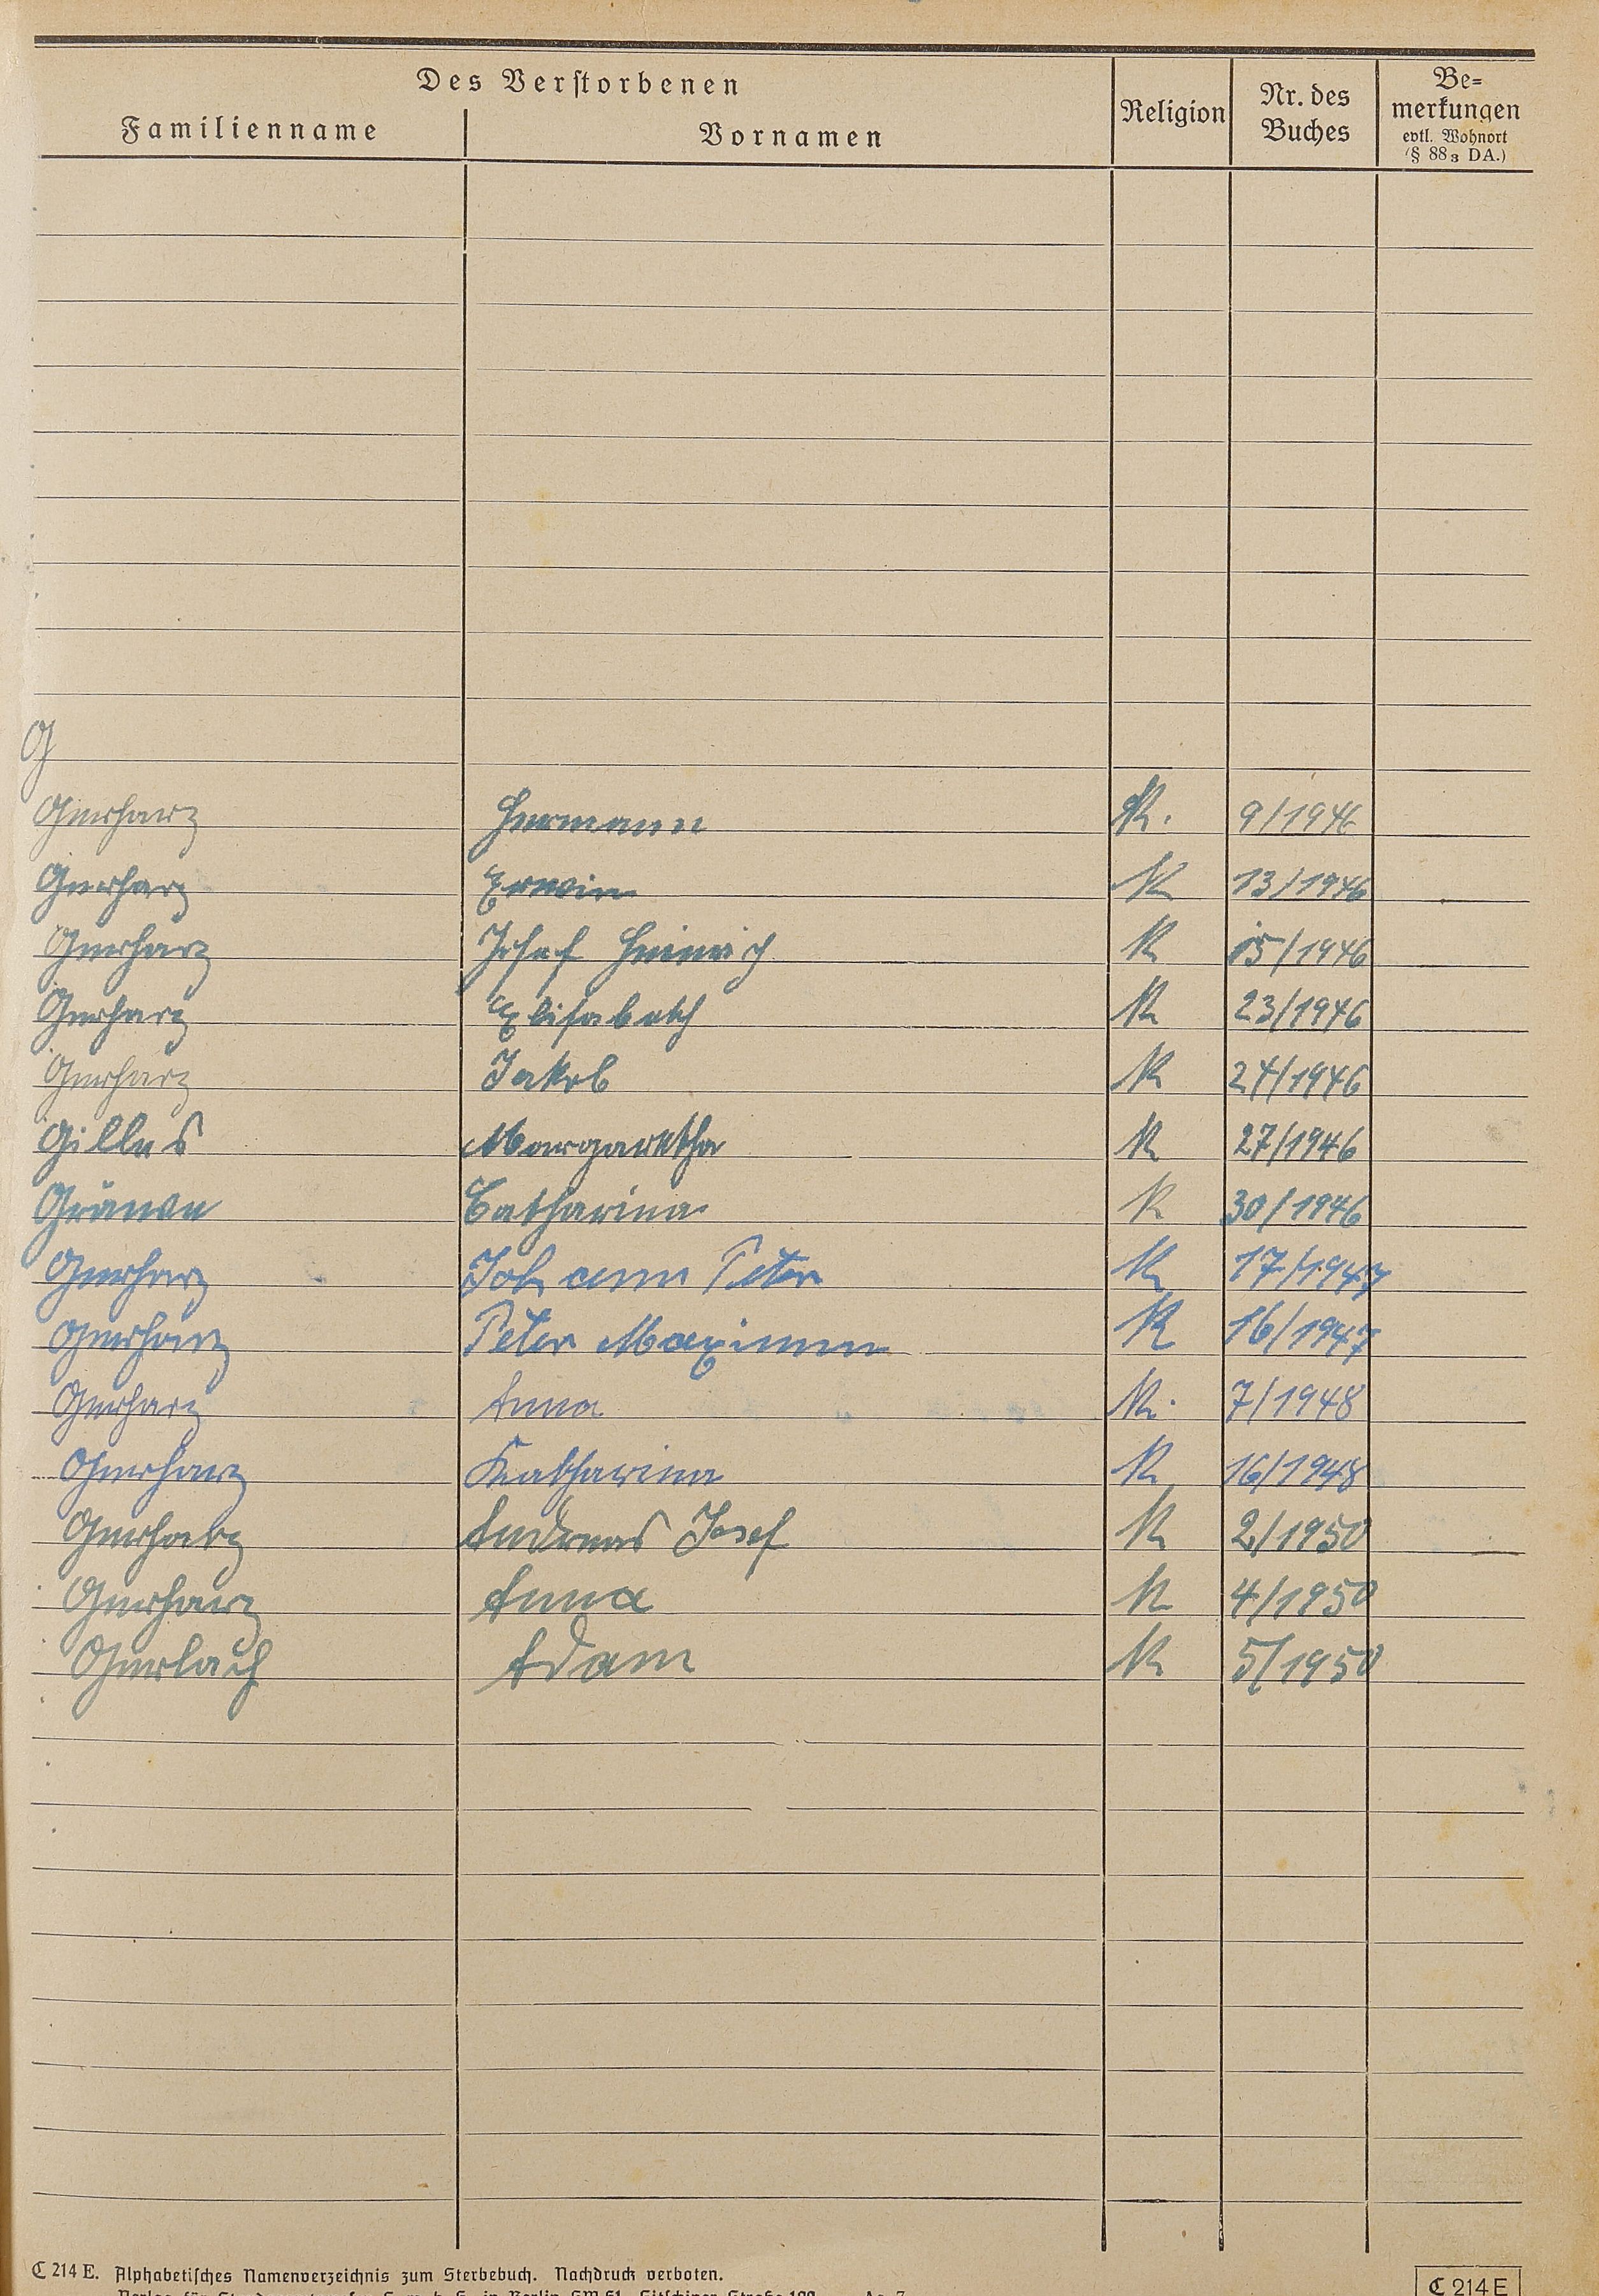 Des Verstorbenen
Familienname Vornamen Religion Nr. des Buches Be=merkungen evtl. Wohnort (§ 88₃ DA.)
G
Gerharz Hermann K. 9/1946
Gerharz Erwin K 13/1946
Gerharz Josef Heinrich K 15/1946
Gerharz Elisabeth K 23/1946
Gerharz Jakob K 24/1946
Gilles Margaretha K 27/1946
Gräwen Catharina K 30/1946
Gerharz Johann Peter K 17/1947
Gerharz Peter Maximin K 16/1947
Gerharz Anna K. 7/1948
Gerharz Katharina K 16/1948
Gerharz Andreas Josef K 2/1950
Gerharz Anna K 4/1950
Gerlach Adam K 5/1950
C 214 E. Alphabetisches Namenverzeichnis zum Sterbebuch. Nachdruck verboten.
C 214 E